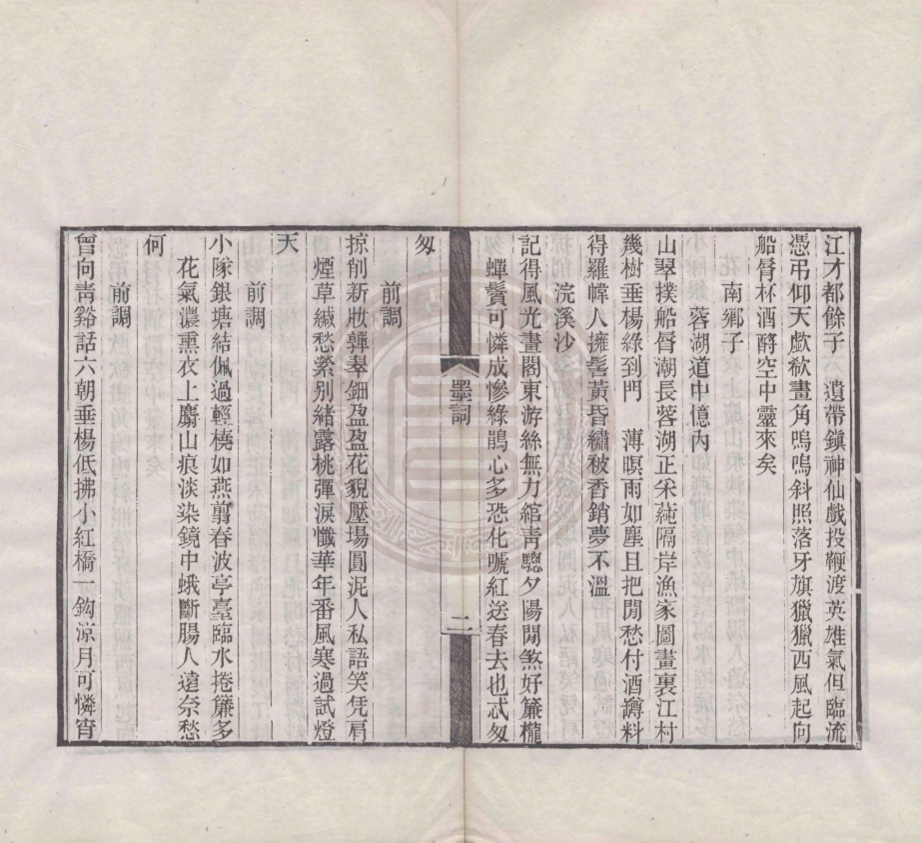 江才都餘子　遺帶鎭神仙戲投鞭渡英雄氣但臨流
憑弔仰天歔欷畫角嗚嗚斜照落牙旗獵獵西風起向
船脣杯酒酹空中靈來矣
南鄉子
蓉湖道中憶內
山翠撲船脣潮長蓉湖正采蒓隔岸漁家圖畫裏江村
幾樹垂楊綠到門　薄暝雨如塵且把閒愁付酒罇料
得羅幃人擁髻黃昏繡被香銷夢不溫
浣溪沙
記得風光畫閣東游絲無力綰靑驄夕陽閒煞好簾櫳
蟬鬢可憐成慘綠鵑心多恐化啼紅送春去也忒匆
墨詞
二
匆
前調
掠削新妝嚲翠鈿盈盈花貌壓場圓泥人私語笑凭肩
煙草緘愁縈别緒露桃彈淚懺華年番風寒過試燈
天
前調
小隊銀塘結佩過輕橈如燕翦春波亭臺臨水捲簾多
花氣濃熏衣上麝山痕淡染鏡中蛾斷腸人遠奈愁
何
前調
曾向靑谿話六朝垂楊低拂小紅橋一鈎涼月可憐宵